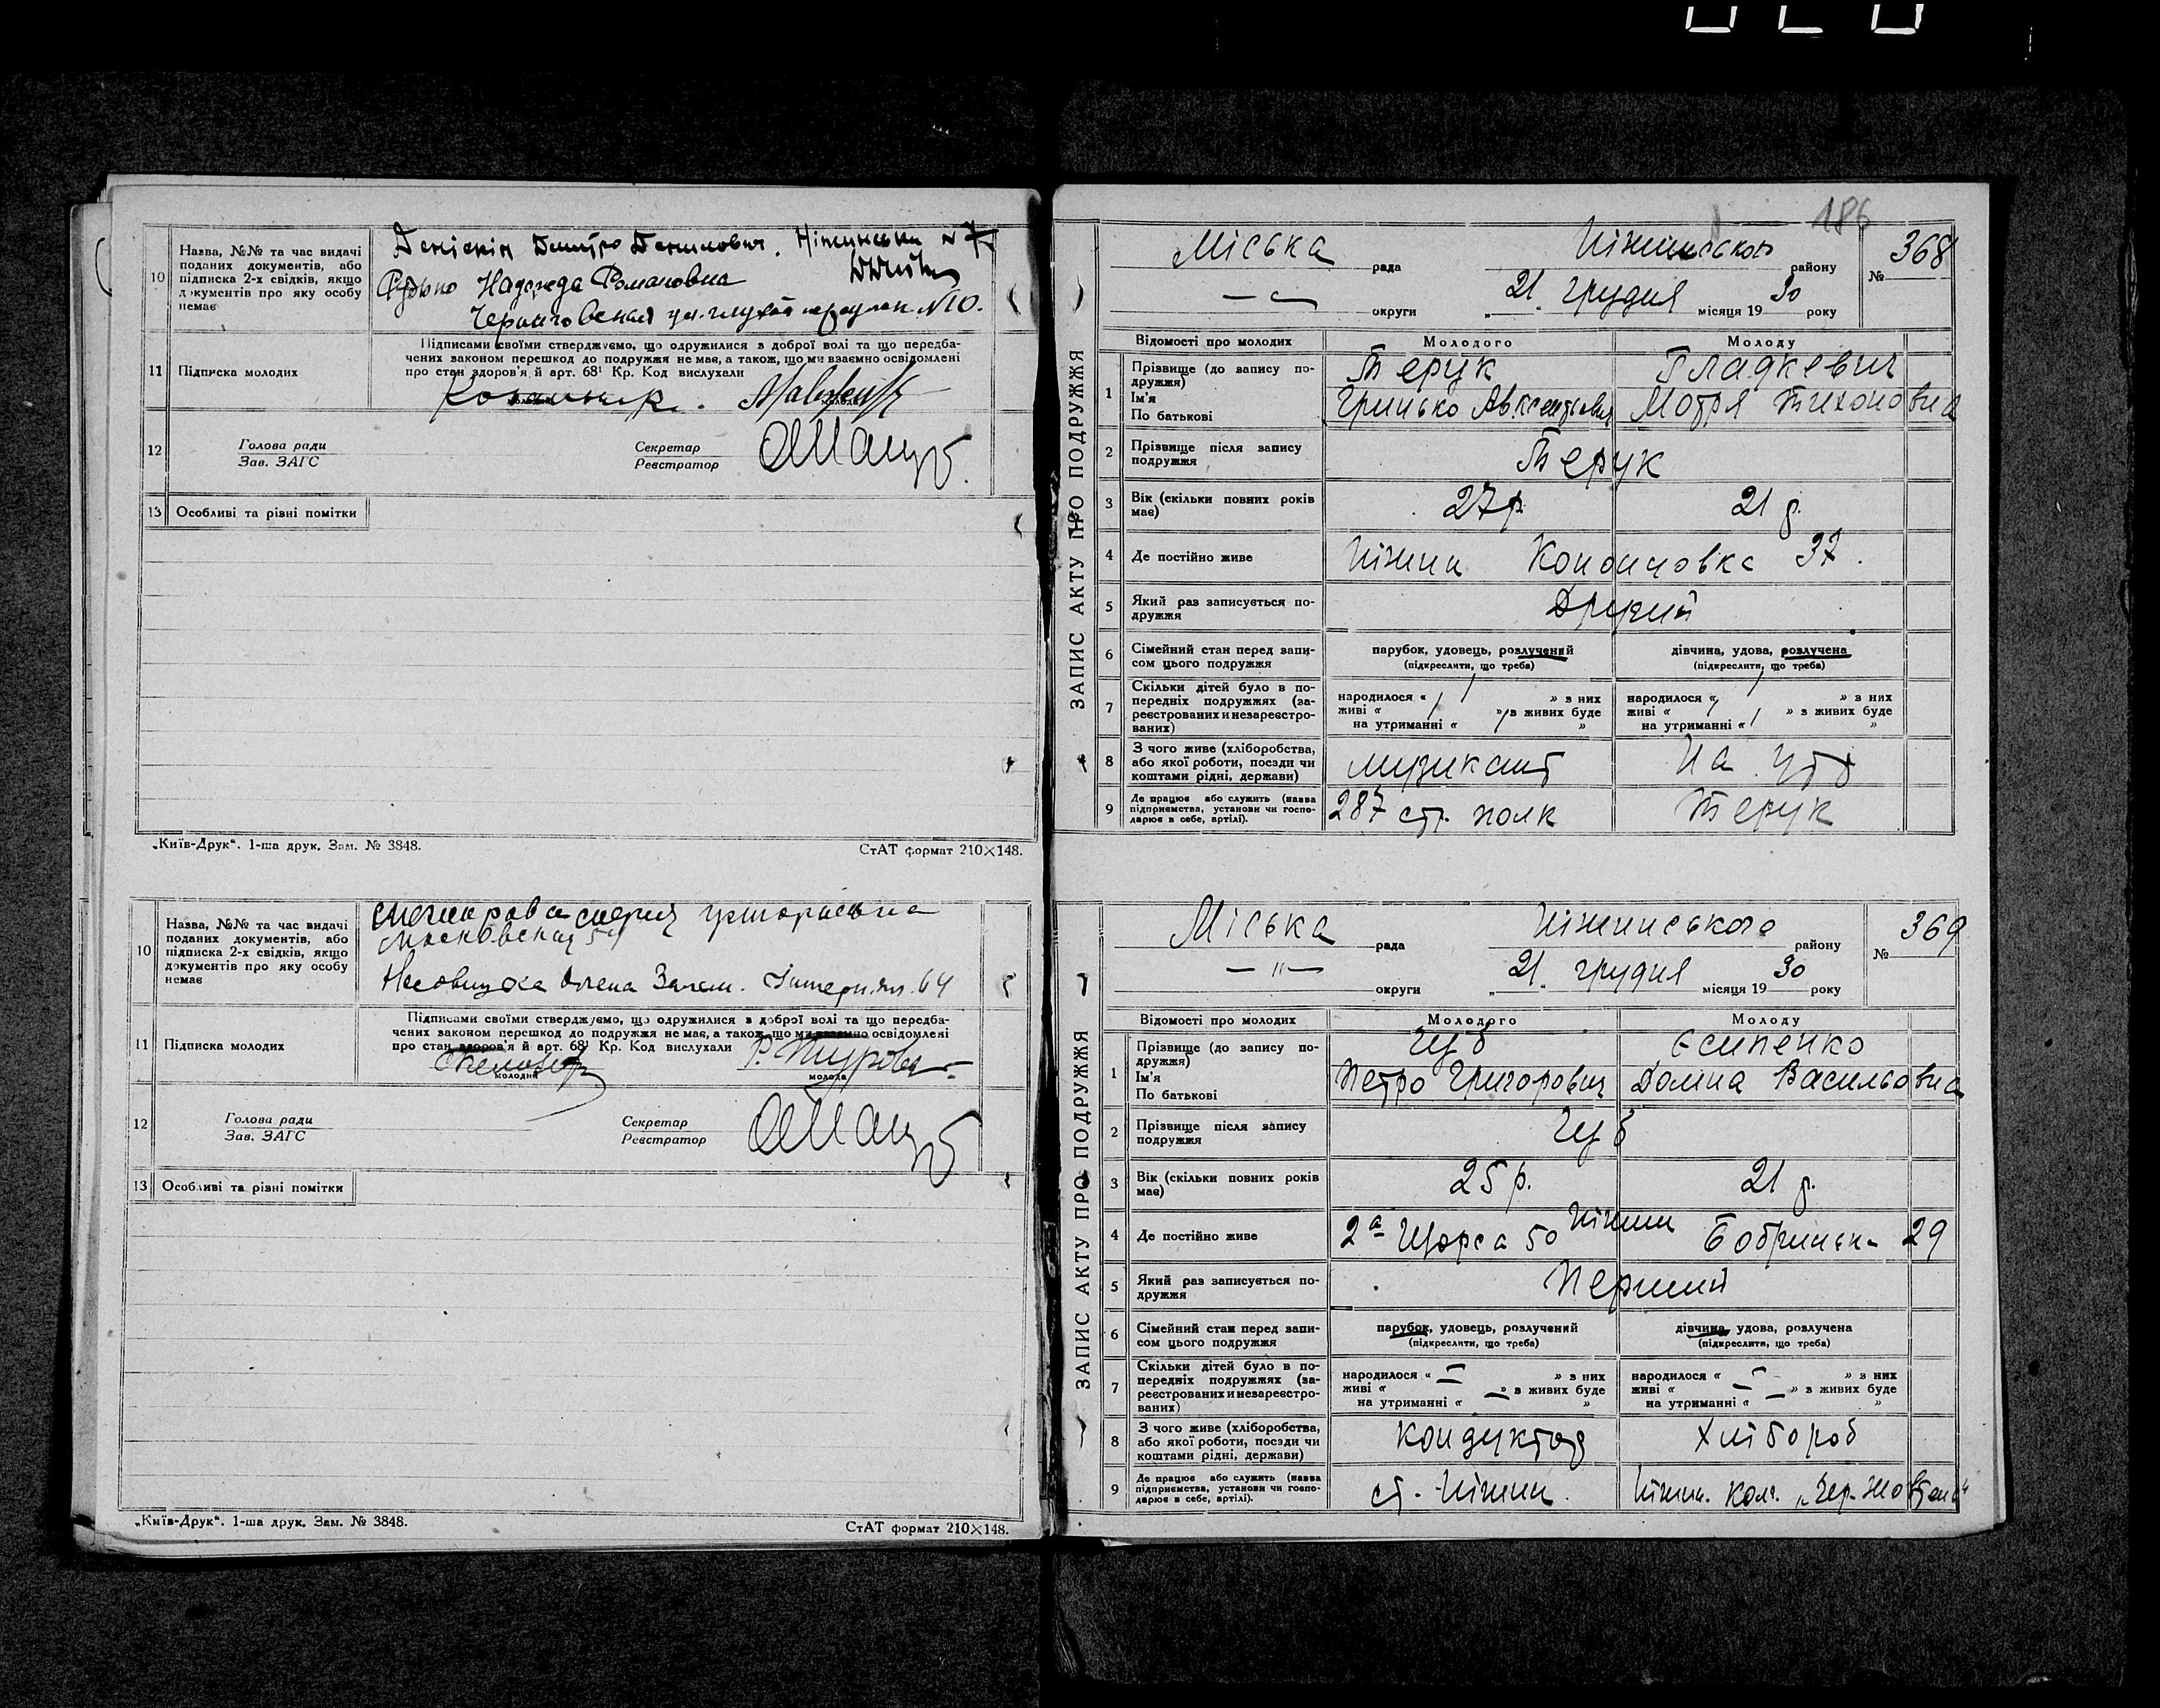 10 Назва, №№ та час видачі
поданих документів, або
підписка 2-х свідків, якщо
документів про яку особу
немає
Дмитро Данилович. Ніжинська № 7
Надежда Романовна
Черниговская ул. глухой переулок № 10.
11 Підписка молодих
Підписами своїми стверджуємо, що одружилися з доброї волі та що передба-
чених законом перешкод до подружжя не має, а також, що ми взаємно освідомлені
про стан здоров'я й арт. 68¹ Кр. Код вислухали
молодий
молода
12 Голова ради
Зав. ЗАГС
Секретар
Реєстратор
13 Особливі та різні помітки
„Київ-Друк“. 1-ша друк. Зам. № 3848.
СтАТ формат 210×148.
10 Назва, №№ та час видачі
поданих документів, або
підписка 2-х свідків, якщо
документів про яку особу
немає
Московская 54
Олена 64
11 Підписка молодих
Підписами своїми стверджуємо, що одружилися з доброї волі та що передба-
чених законом перешкод до подружжя не має, а також, що ми взаємно освідомлені
про стан здоров'я й арт. 68¹ Кр. Код вислухали
молодий
молода
12 Голова ради
Зав. ЗАГС
Секретар
Реєстратор
13 Особливі та різні помітки
„Київ-Друк“. 1-ша друк. Зам. № 3848.
СтАТ формат 210×148.
186
ЗАПИС АКТУ ПРО ПОДРУЖЖЯ
Міська рада Ніжинського району № 368
— " — округи „21“ грудня місяця 1930 року
Відомості про молодих Молодого Молоду
1 Прізвище (до запису по-
дружжя)
Ім'я
По батькові
Терук Гладкевич
Гринько Авксентьевич Мотря Тихоновна
2 Прізвище після запису
подружжя
Терук
3 Вік (скільки повних років
має)
27 р. 21 р.
4 Де постійно живе
Ніжин Кононовка 37.
5 Який раз записується по-
дружжя
Другий
6 Сімейний стан перед запи-
сом цього подружжя
парубок, удовець, розлучений
(підкреслити, що треба)
дівчина, удова, розлучена
(підкреслити, що треба)
7 Скільки дітей було в по-
передніх подружжях (за-
реєстрованих и незареєстро-
ваних)
народилося « / » з них
живі « / » з живих буде
на утриманні « / »
народилося « / » з них
живі « / » з живих буде
на утриманні « / »
8 З чого живе (хліборобства,
або якої роботи, посади чи
коштами рідні, держави)
музикант На утр
9 Де працює або служить (назва
підприємства, установи чи госпо-
дарює в себе, артілі).
287 стр. полк Терук
ЗАПИС АКТУ ПРО ПОДРУЖЖЯ
Міська рада Ніжинського району № 369
— " — округи „21“ грудня місяця 1930 року
Відомості про молодих Молодого Молоду
1 Прізвище (до запису по-
дружжя)
Ім'я
По батькові
Чуб Єсипенко
Петро Григорович Домна Васильовна
2 Прізвище після запису
подружжя
Чуб
3 Вік (скільки повних років
має)
25 р. 21 р.
4 Де постійно живе
Ніжин
2а Щорса 50 Бобринськ 29
5 Який раз записується по-
дружжя
Перший
6 Сімейний стан перед запи-
сом цього подружжя
парубок, удовець, розлучений
(підкреслити, що треба)
дівчина, удова, розлучена
(підкреслити, що треба)
7 Скільки дітей було в по-
передніх подружжях (за-
реєстрованих и незареєстро-
ваних)
народилося « — » з них
живі « — » з живих буде
на утриманні « »
народилося « — » з них
живі « — » з живих буде
на утриманні « — »
8 З чого живе (хліборобства,
або якої роботи, посади чи
коштами рідні, держави)
кондуктор хлібороб
9 Де працює або служить (назва
підприємства, установи чи госпо-
дарює в себе, артілі).
ст. Ніжин. Ніжин. кол. „Чер. Жовтень“